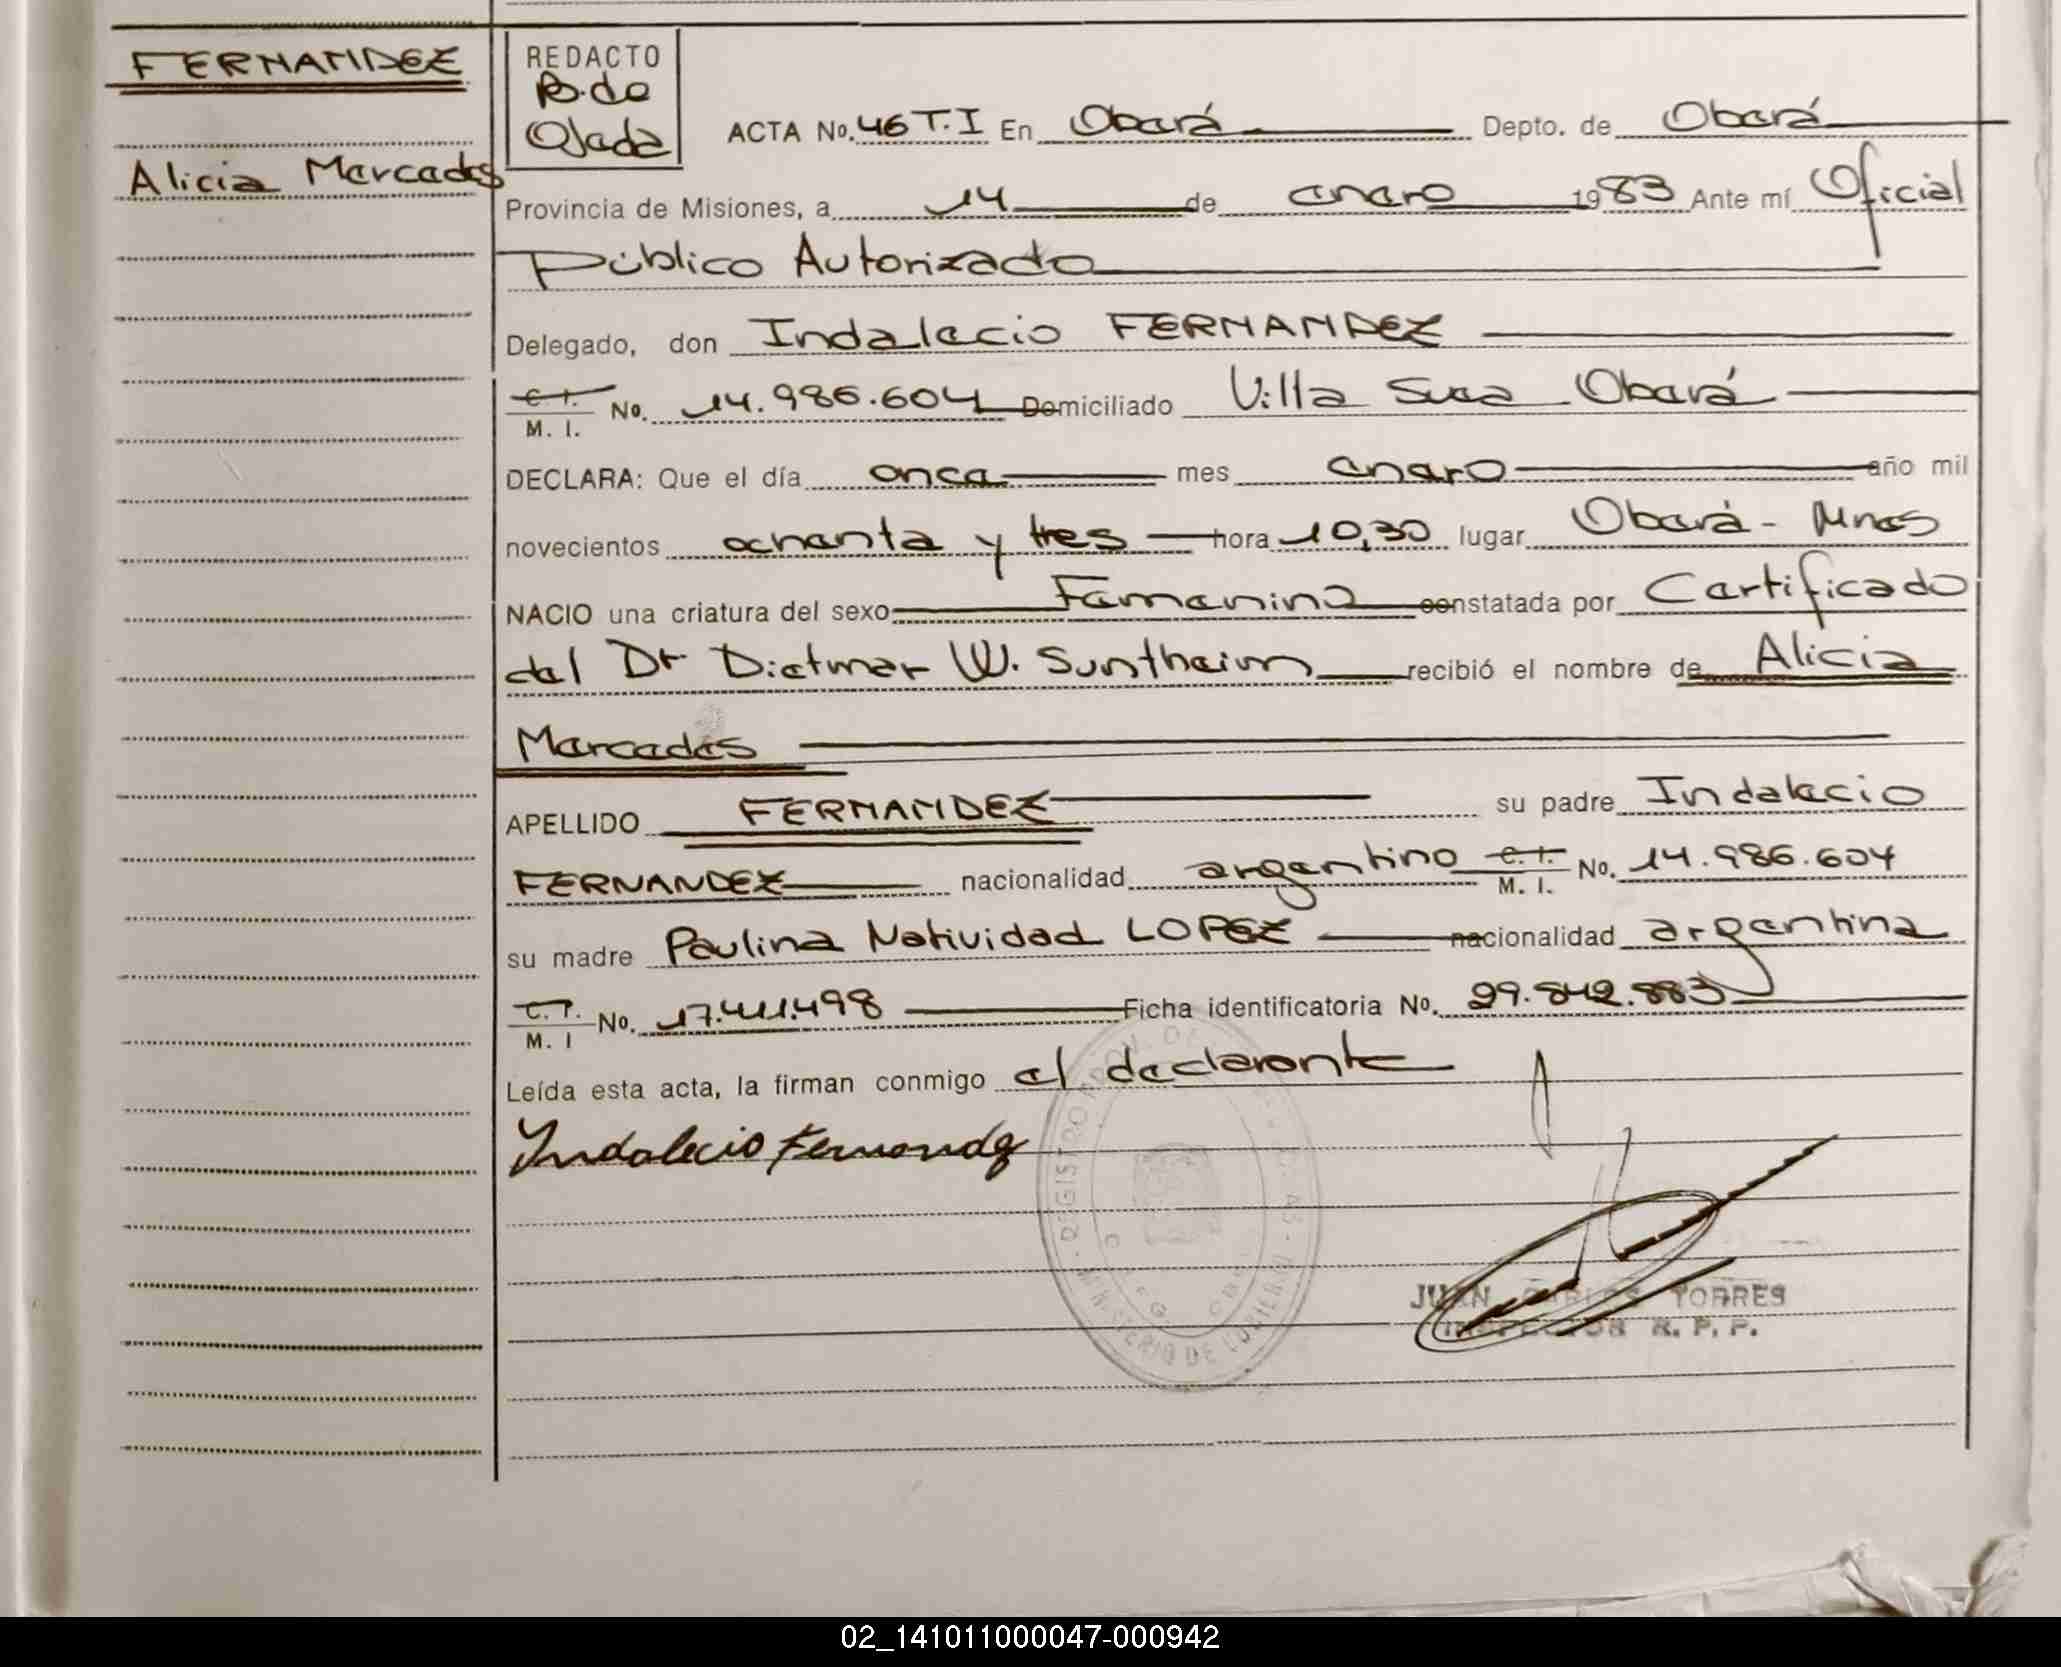 FERNANDEZ
Alicia Mercedes
REDACTO
B. de
Ojeda
ACTA No. 46 T. I En Oberá Depto. de Oberá
Provincia de Misiones, a 14 de enero 1983 Ante mí Oficial
Público Autorizado
Delegado, don Indalecio FERNANDEZ
C. I. M. I. No. 14.986.604 Domiciliado Villa Suea Oberá
DECLARA: Que el día once mes enero año mil
novecientos ochenta y tres hora 10,30 lugar Oberá - Mnes
NACIO una criatura del sexo Femenino constatada por Certificado
del Dr Dietmar W. Suntheim recibió el nombre de Alicia
Mercedes
APELLIDO FERNANDEZ su padre Indalecio
FERNANDEZ nacionalidad argentino C. I. M. I. No. 14.986.604
su madre Paulina Natividad LOPEZ nacionalidad argentina
C. I. M. I No. 17.411.498 Ficha identificatoria No. 29.842.883
Leída esta acta, la firman conmigo el declarante
Indalecio Fernandez
MINISTERIO DE GOBIERNO
JUAN CARLOS TORRES
INSPECTOR R. P. P.
02_141011000047-000942